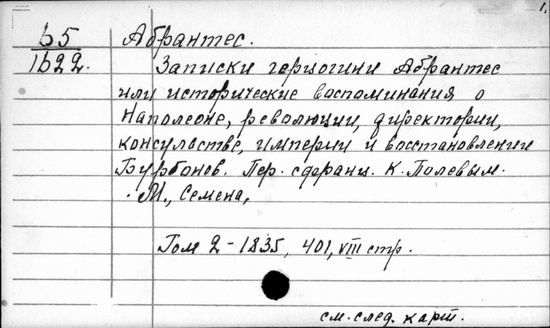 1.
Б5
1622.
Абрантес.
Записки герцогини Абрантес
или исторические воспоминания о
Наполеоне, революции, директории,
консульстве, империи и восстановлении
Бурбонов. Пер. с франц. К. Полевым.
М., Семена,
Том 2 - 1835, 401, VIII стр.
см. след. карт.